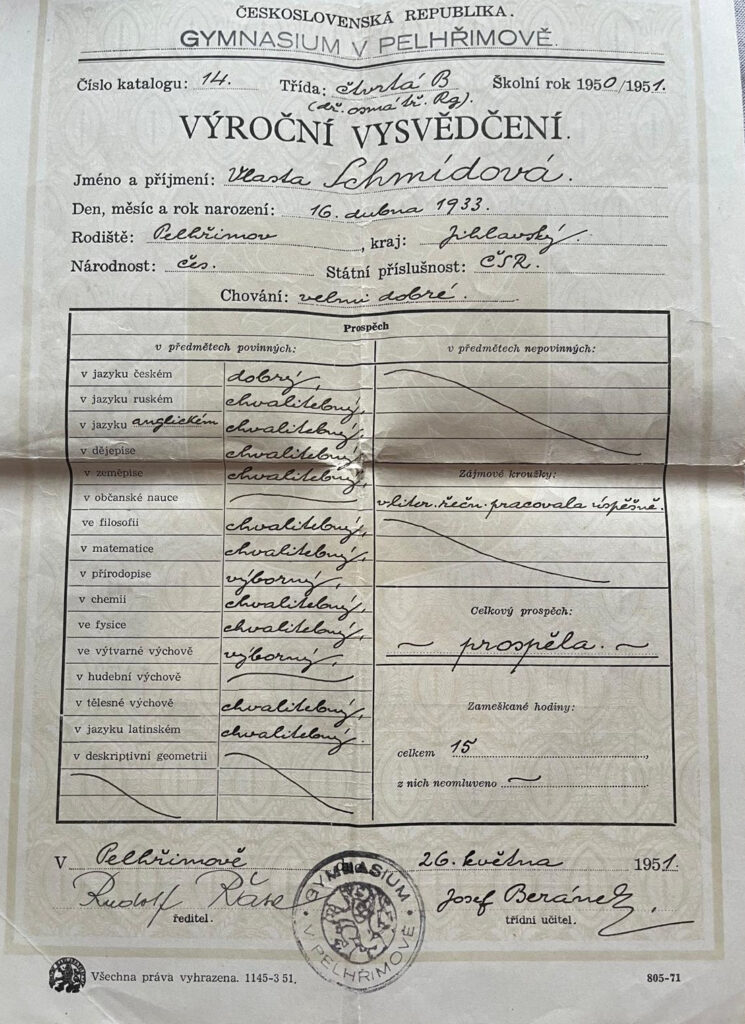 ČESKOSLOVENSKÁ REPUBLIKA.
GYMNASIUM V PELHŘIMOVĚ.
Číslo katalogu: 14. Třída: čtvrtá B Školní rok 1950/1951.
(dř. osmá tř. Rg).
VÝROČNÍ VYSVĚDČENÍ.
Jméno a příjmení: Vlasta Schmídová.
Den, měsíc a rok narození: 16. dubna 1933.
Rodiště: Pelhřimov, kraj: Jihlavský.
Národnost: čes. Státní příslušnost: ČSR.
Chování: velmi dobré.
Prospěch
v předmětech povinných: v předmětech nepovinných:
v jazyku českém dobrý,
v jazyku ruském chvalitebný,
v jazyku anglickém chvalitebný,
v dějepise chvalitebný,
v zeměpise chvalitebný,
v občanské nauce
ve filosofii chvalitebný,
v matematice chvalitebný,
v přírodopise výborný,
v chemii chvalitebný,
ve fysice chvalitebný,
ve výtvarné výchově výborný,
v hudební výchově
v tělesné výchově chvalitebný,
v jazyku latinském chvalitebný.
v deskriptivní geometrii
Zájmové kroužky:
v liter. řečn. pracovala úspěšně.
Celkový prospěch:
prospěla.
Zameškané hodiny:
celkem 15
z nich neomluveno —
V Pelhřimově 26. května 1951.
Rudolf Josef Beránek
ředitel. třídní učitel.
GYMNASIUM V PELHŘIMOVĚ
Všechna práva vyhrazena. 1145-3 51. 805-71